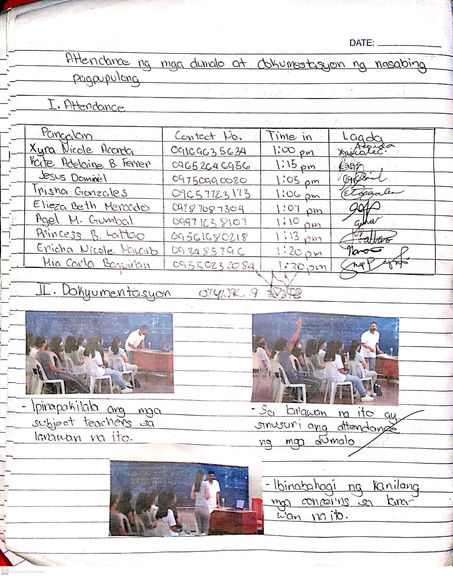 DATE:
Attendance ng mga dumalo at dokumestasyon ng nasabing
pagpupulong
I. Attendance
Pangalan Contact No. Time in Lagda
Xyra Nicole Acanda 09169635634 1:00 pm
Kate Adelaine B Ferrer 09652646956 1:15 pm
Jesus Dominiel 09750990020 1:05 pm
Trisha Gonzales 09657723173 1:06 pm
Elieza Beth Mercado 09287087304 1:07 pm
Agel M. Gumbal 09971638107 1:10 pm
Princess B. Lattao 09561680218 1:13 pm
Ericha Nicole 1:20 pm
Mia Carla 09550230084 1:30 pm
II. Dokyumentasyon
- Ipinapakilala ang mga
subject teachers sa
larawan na ito.
- Sa larawan na ito ay
sinusuri ang attendance
ng mga dumalo
- Ibinabahagi ng kanilang
mga concerns sa lara-
wan na ito.